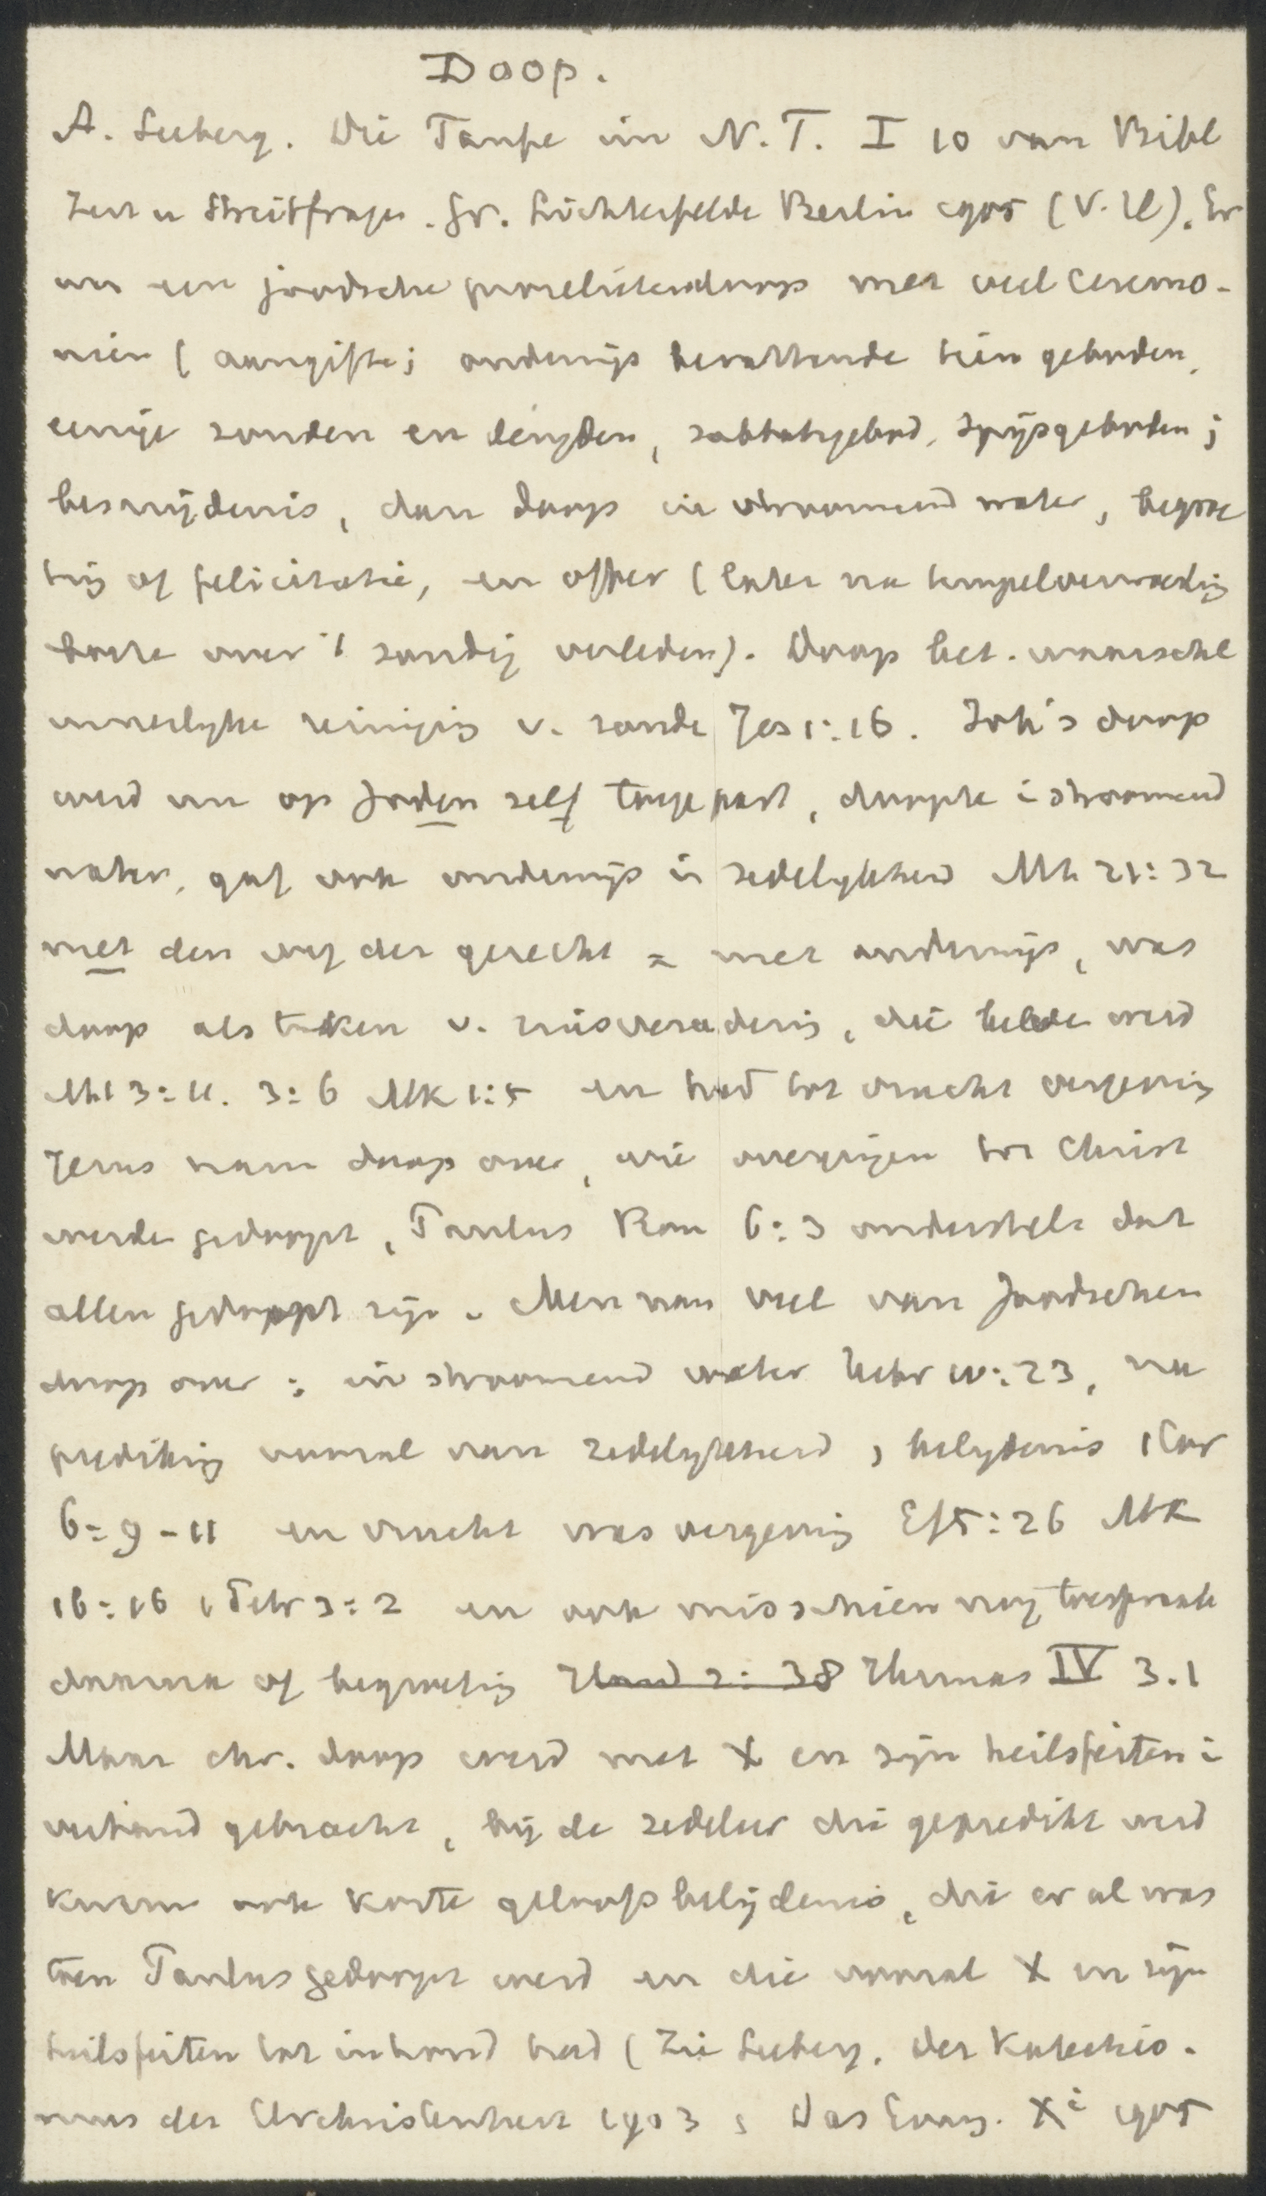 Doop.
A. Seeberg. Die Taufe im N.T. I 10 van Bibl
Zeit u Streitfragen. Gr. Lichterfelde Berlin 1905 (V.U). Er
was een joodsche proselietendoop met veel ceremo-
niën (aangifte; onderwijs bevattende tien geboden,
eenige zonden en deugden, sabbatsgebod, spijsgeboden;
besnijdenis, dan doop in stroomend water, begroe
ting of felicitatie, en offer (later na tempelverwoesting
boete over 't zondig verleden). Doop bet. waarschl
innerlyke reiniging v. zonde Jes 1:16. Joh's doop
werd nu op Joden zelf toegepast, doopte i stroomend
water, gaf ook onderwijs in zedelykheid Mt 21:32
met den weg der gerecht = met onderwijs, was
doop als teeken v. zinsverandering, die beleden werd
Mt 3:11. 3:6 Mk 1:5 en had tot vrucht vergeving
Jezus nam doop over, wie overgingen tot Christ
werden gedoopt, Paulus Rom 6:3 onderstelt dat
allen gedoopt zijn. Men nam veel van Joodschen
doop over: in stroomend water Hebr 10:23, na
prediking vooral van zedelykheid, belydenis 1 Cor
6:9-11 en vrucht was vergeving Ef 5:26 Mk
16:16 1 Petr 3:2 en ook misschien nog toespraak
daarna of begroeting Hand 2:38 Hermas IV 3.1
Maar chr. doop werd met X en zijn heilsfeiten i
verband gebracht, bij de zedeleer die gepredikt werd
kwam ook korte geloofsbelijdenis, die er al was
toen Paulus gedoopt werd en die vooral X en zijn
heilsfeiten tot inhoud had (Zie Seeberg. Der Katechis-
mus der Urchristenheit 1903; Das Evang. Xi 1905